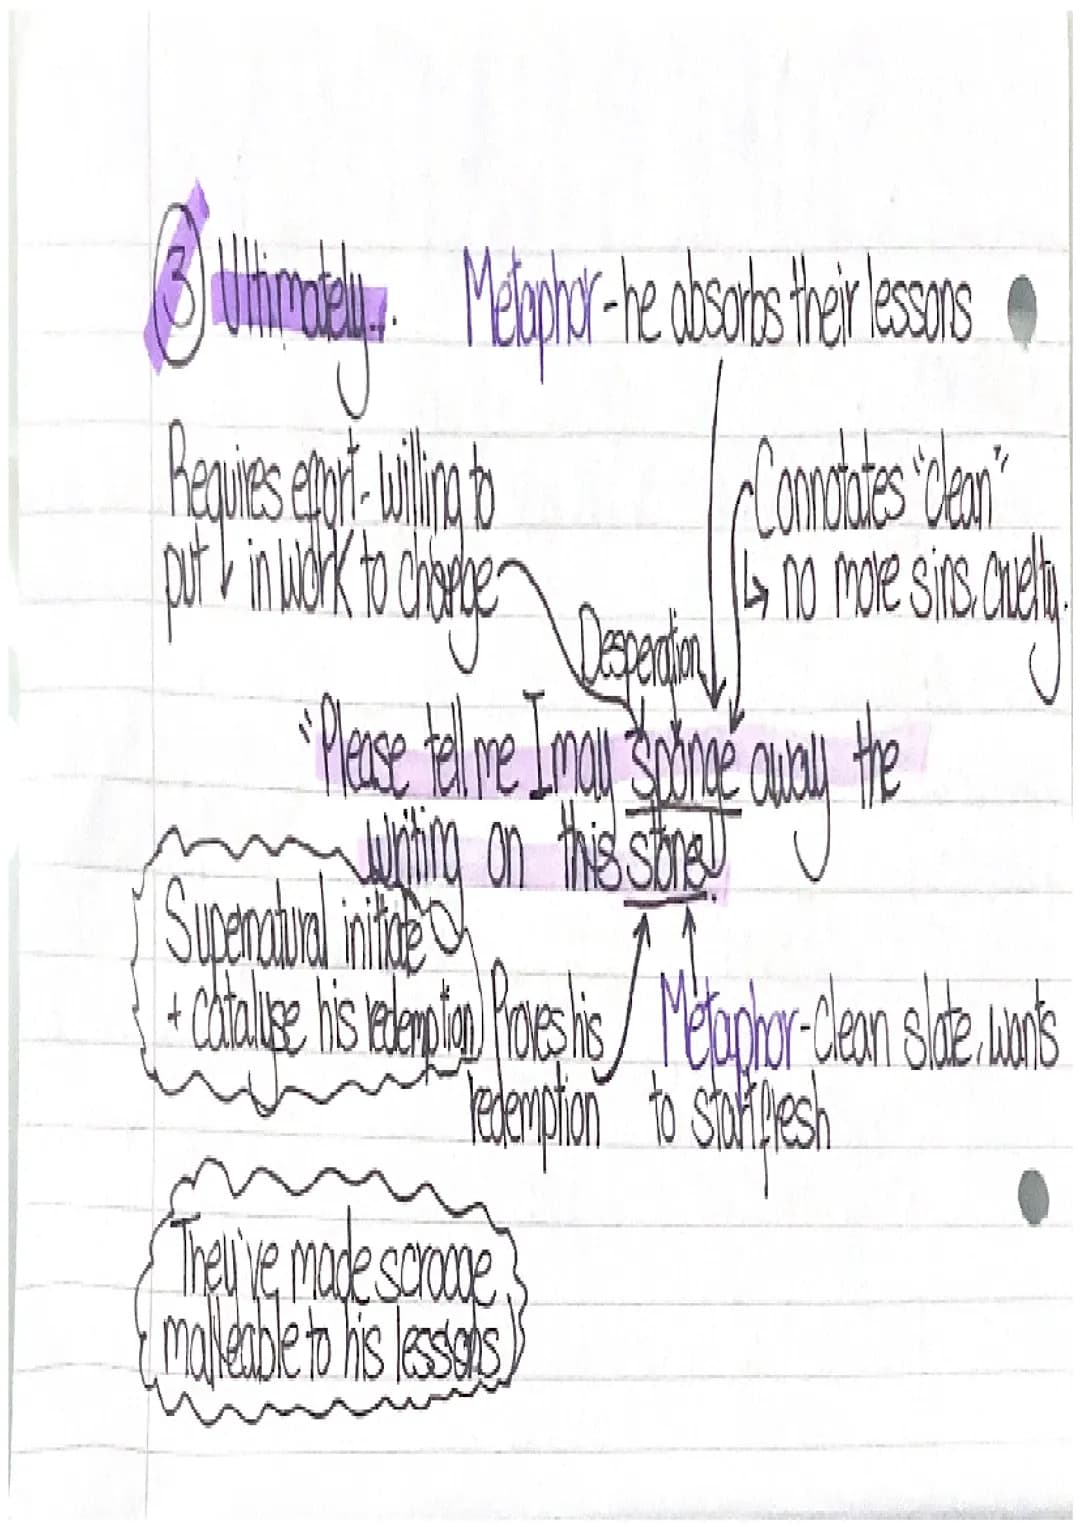 3 Ultimately...
Metaphor - he absorbs their lessons
Requires effort - willing to
put ↓ in work to change
Connotates "clean"
↳ no more sins, cruelty.
Desperation
"Please tell me I may sponge away the
writing on this stone!"
Supernatural initiate
+ catalyse his redemption
Proves his
redemption
Metaphor - Clean slate, wants
to start fresh
They've made scrooge
malleable to his lessons